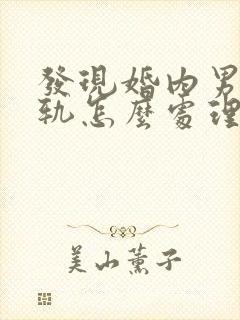 發現婚內男
軌怎麼處理
美山薰子